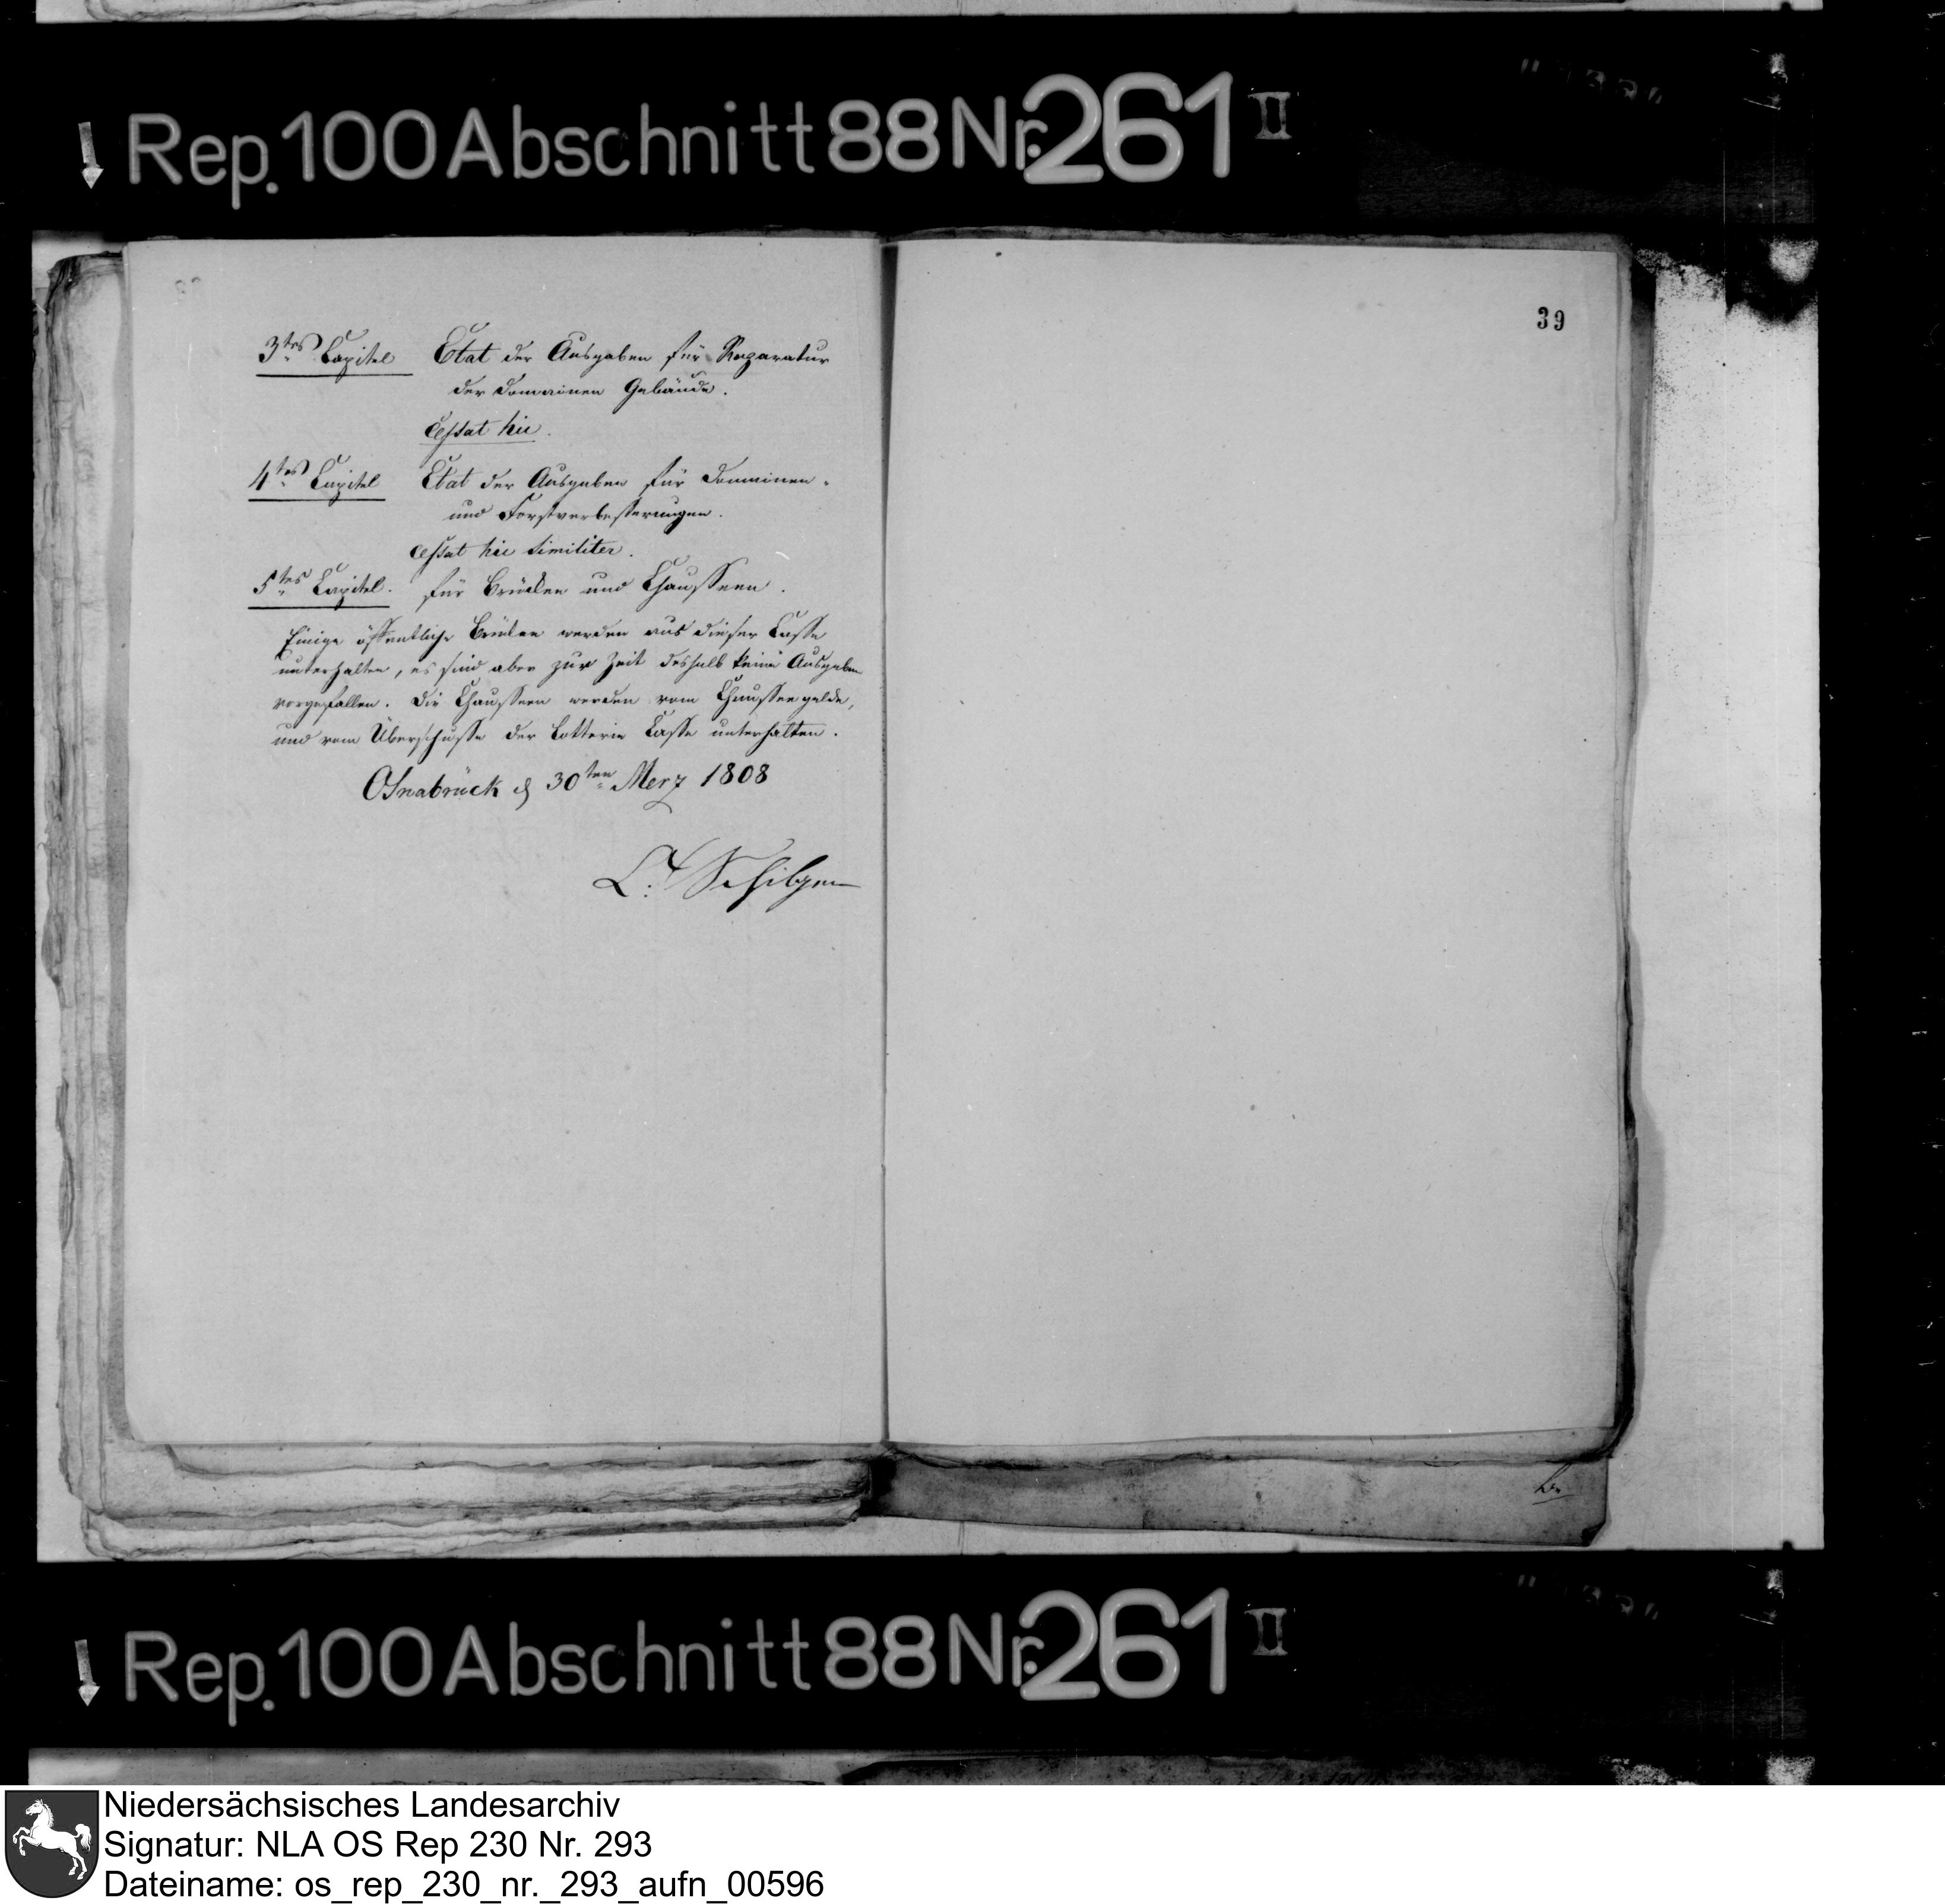 Rep. 100 Abschnitt 88 Nr. 261 II
39
3tes Capitel Etat der Ausgaben für Reparatur
der Domainen Gebäude.
Cessat hic.
4tes Capitel Etat der Ausgaben für Domainen-
und Forstverbesserungen.
Cessat hic similiter.
5tes Capitel. für Brücken und Chausseen.
Einige öffentliche Brücken werden aus dieser Casse
unterhalten, es sind aber zur Zeit deshalb keine Ausgaben
vorgefallen. Die Chausseen werden vom Chausseegelde,
und vom Überschusse der Lotterie Casse unterhalten.
Osnabrück d 30ten Merz 1808
Schilgen
Rep. 100 Abschnitt 88 Nr. 261 II
Niedersächsisches Landesarchiv
Signatur: NLA OS Rep 230 Nr. 293
Dateiname: os_rep_230_nr._293_aufn_00596